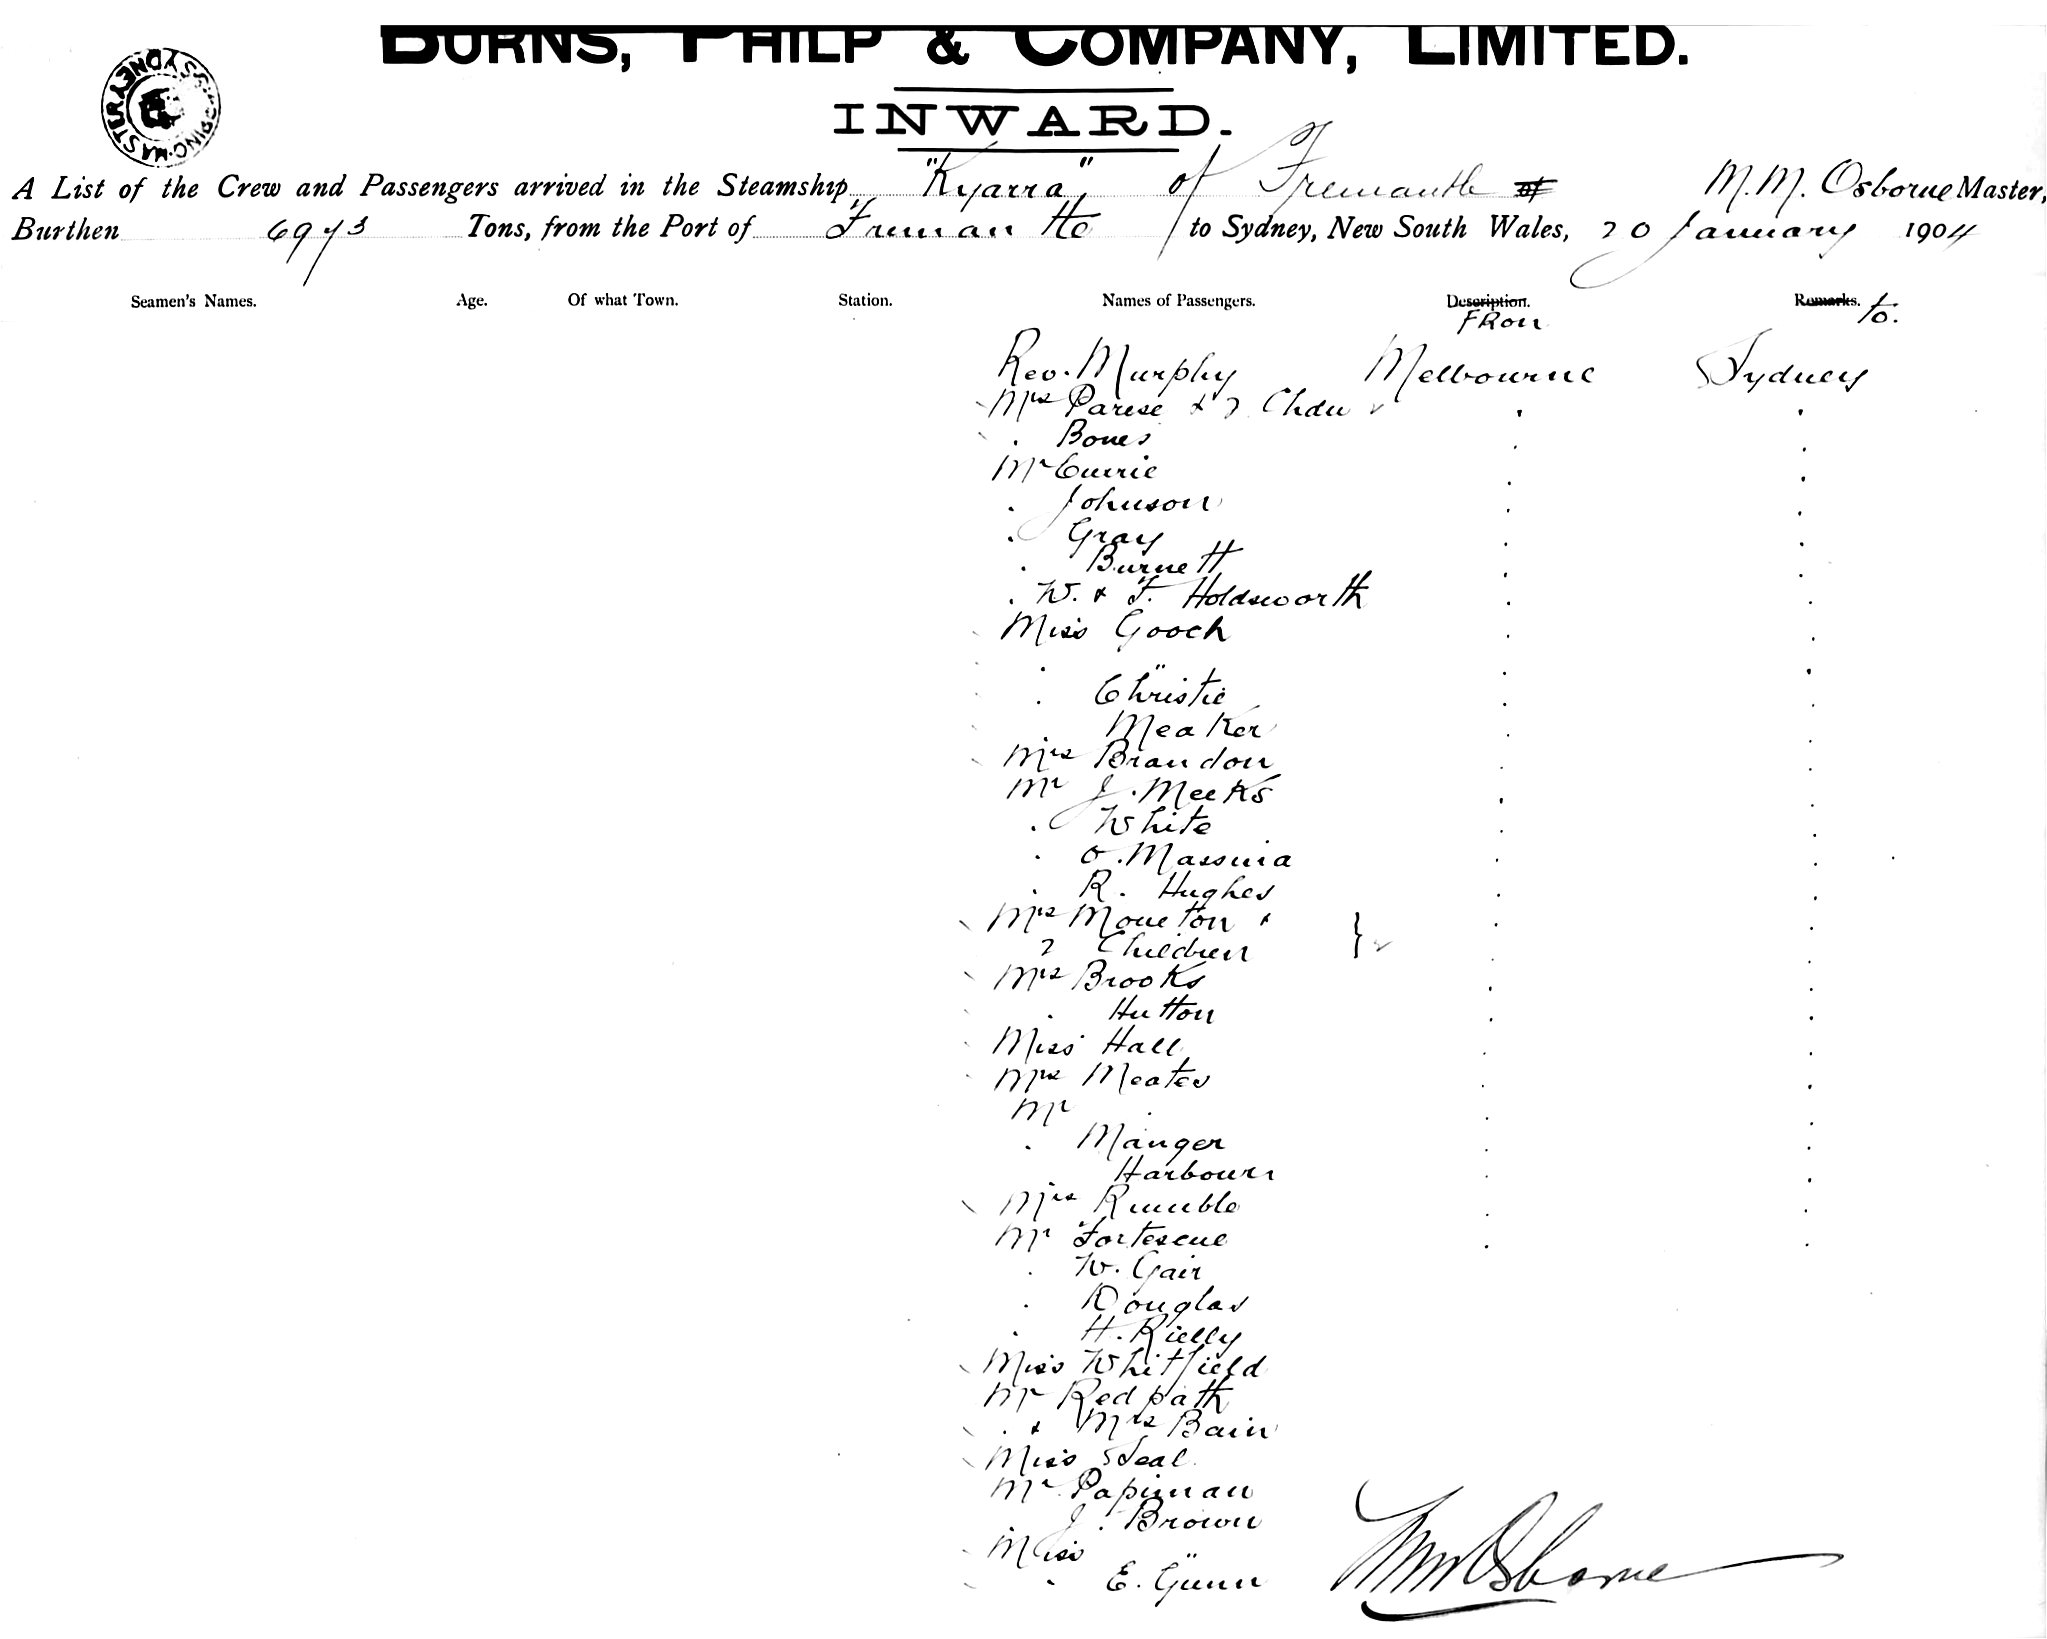 BURNS, PHILP & COMPANY, LIMITED.
INWARD.
SHIPPING MASTER SYDNEY
A List of the Crew and Passengers arrived in the Steamship "Kyarra", of Fremantle of M.M. Osborne Master,
Burthen 6973 Tons, from the Port of Fremantle to Sydney, New South Wales, 20 January 1904
Seamen's Names. Age. Of what Town. Station. Names of Passengers. Description. Remarks. to.
FROM
Rev. Murphy Melbourne Sydney
Mrs Parise & 2 Chdn
" Bones
Mr Currie
" Johnson
" Gray
" Burnett
" W. & F. Holdsworth
Miss Gooch
" "
" Christie
Meaker
Mrs Brandon
Mr J. Meeks
" White
" O. Massina
" R. Hughes
Mrs Moueton &
2 Children }
Mrs Brooks
" Hutton
Miss Hall
Mrs Meates
Mr "
" Manger
Harbourn
Mrs Rumble
Mr Fortescue
" W. Gair
" Douglas
" H. Rielly
Miss Whitfield
Mr Redpath
" & Mrs Bain
Miss Seal
Mr Papiman
J. Brown
Miss "
" E. Gunn
MMOsborne